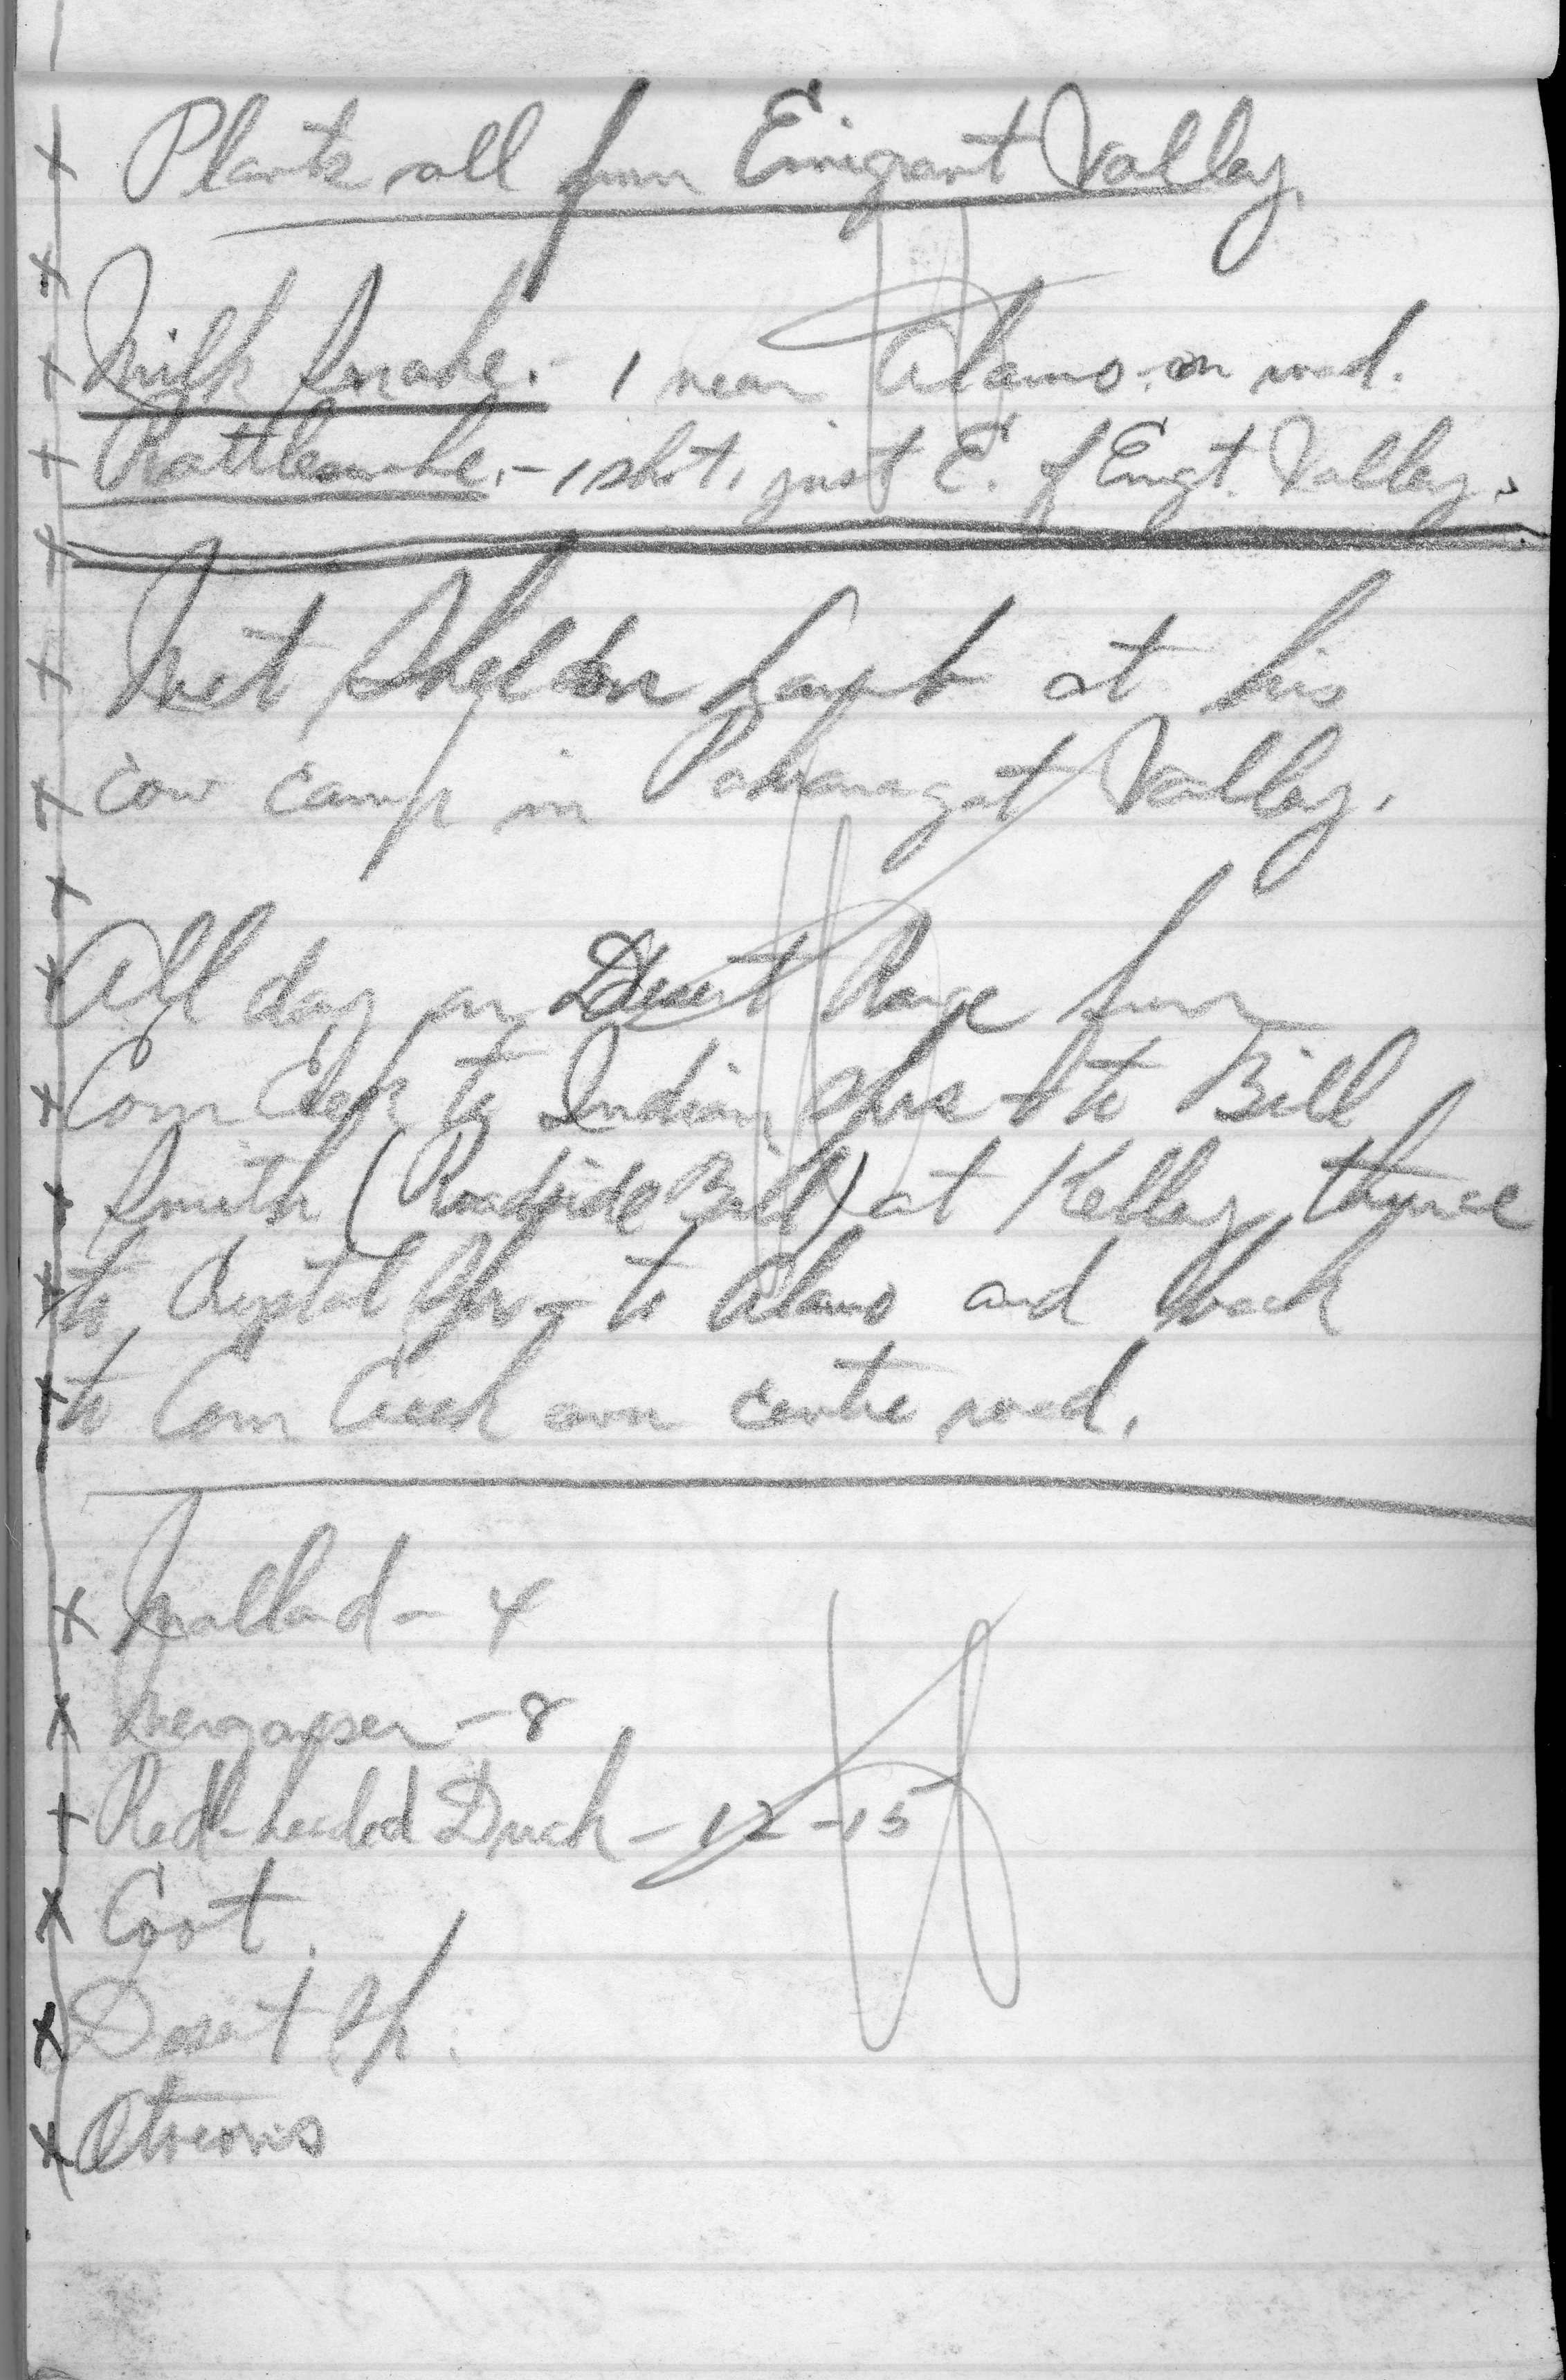 Plants all from Emigrant Valley.
Milk Snake. - 1 near Alamo on road.
Rattlesnake. - 1 shot, just E. of Emgt. Valley.
Met Sheldon at his
cow camp in Pahranagat Valley.
All day on Desert Range from
Corn Creek to Indian Spgs - to Bill
Smith (Roadside Bill) at Kelley, thence
to Crystal Spr - to Alamo and back
to Corn Creek over centre road.
Mallard - 4
Merganser - 8
Red-headed Duck - 12-15
Coot.
Desert Sp.
Otocoris